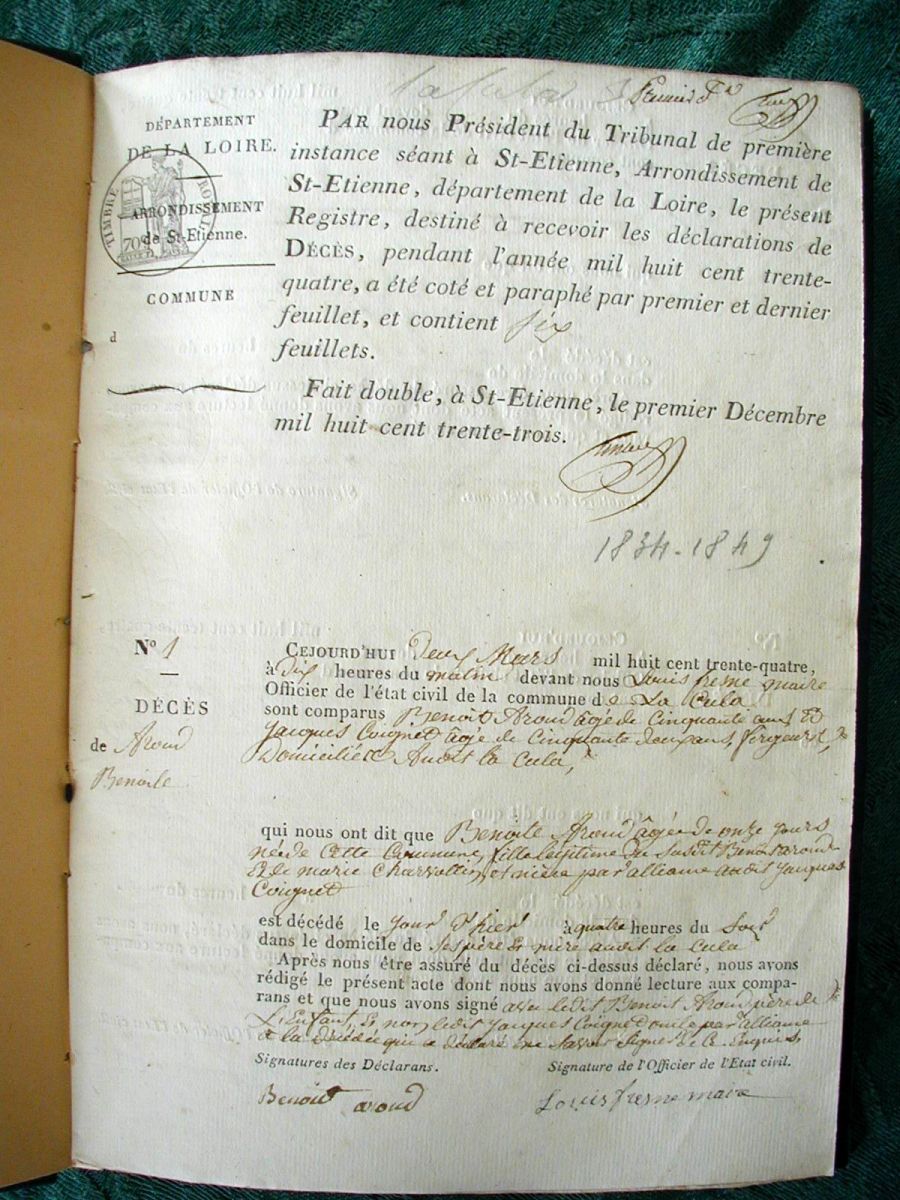 Premier fet
DÉPARTEMENT
DE LA LOIRE.
TIMBRE ROYAL
70c
ARRONDISSEMENT
de St-Etienne.
COMMUNE
d
PAR nous Président du Tribunal de première
instance séant à St-Etienne, Arrondissement de
St-Etienne, département de la Loire, le présent
Registre, destiné à recevoir les déclarations de
DÉCÈS, pendant l'année mil huit cent trente-
quatre, a été coté et paraphé par premier et dernier
feuillet, et contient six
feuillets.
Fait double, à St-Etienne, le premier Décembre
mil huit cent trente-trois.
1834-1849
No 1
DÉCÈS
de Aroud
Benoite
CEJOURD'HUI deux Mars mil huit cent trente-quatre,
à dix heures du matin devant nous Louis fresne maire
Officier de l'état civil de la commune de La Cula
sont comparus Benoit Aroud âgé de Cinquante ans Et
Jacques Coignet âgé de Cinquante deux ans, forgeurs,
Domiciliés Audit la Cula,
qui nous ont dit que Benoite Aroud âgée de onze jours
née de Cette Commune, fille légitime du Susdit Benoit aroud
Et de marie Charvottin, et nièce par alliance audit Jacques
Coignet
est décédé le jour d'hier à quatre heures du Soir
dans le domicile de Ses père & mère audit la Cula
Après nous être assuré du décès ci-dessus déclaré, nous avons
rédigé le présent acte dont nous avons donné lecture aux compa-
rans et que nous avons signé avec ledit Benoit Aroud père de
L'Enfant, Et non ledit Jacques Coignet oncle par alliance
à la Décédée qui a déclaré ne Savoir Signer de Ce Enquis,
Signatures des Déclarans.
Signature de l'Officier de l'Etat civil.
Benoit aroud
Louis fresne maire